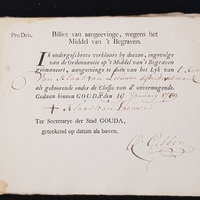 Pro Deo.
Billet van aangeevinge, wegens het
Middel van 't Begraven.
Ik ondergeschreve verklaare by deezen, ingevolge
van de Ordonnantie op 't Middel van 't Begraven
geëmaneert, aangeevinge te doen van het Lyk van
van
als gehoorende onder de Classis van d'onvermogende.
Gedaan binnen GOUDA den 19 January 1789
Klaas van Leeuwen
Ter Secretarye der Stad GOUDA,
geteekend op datum als boven,